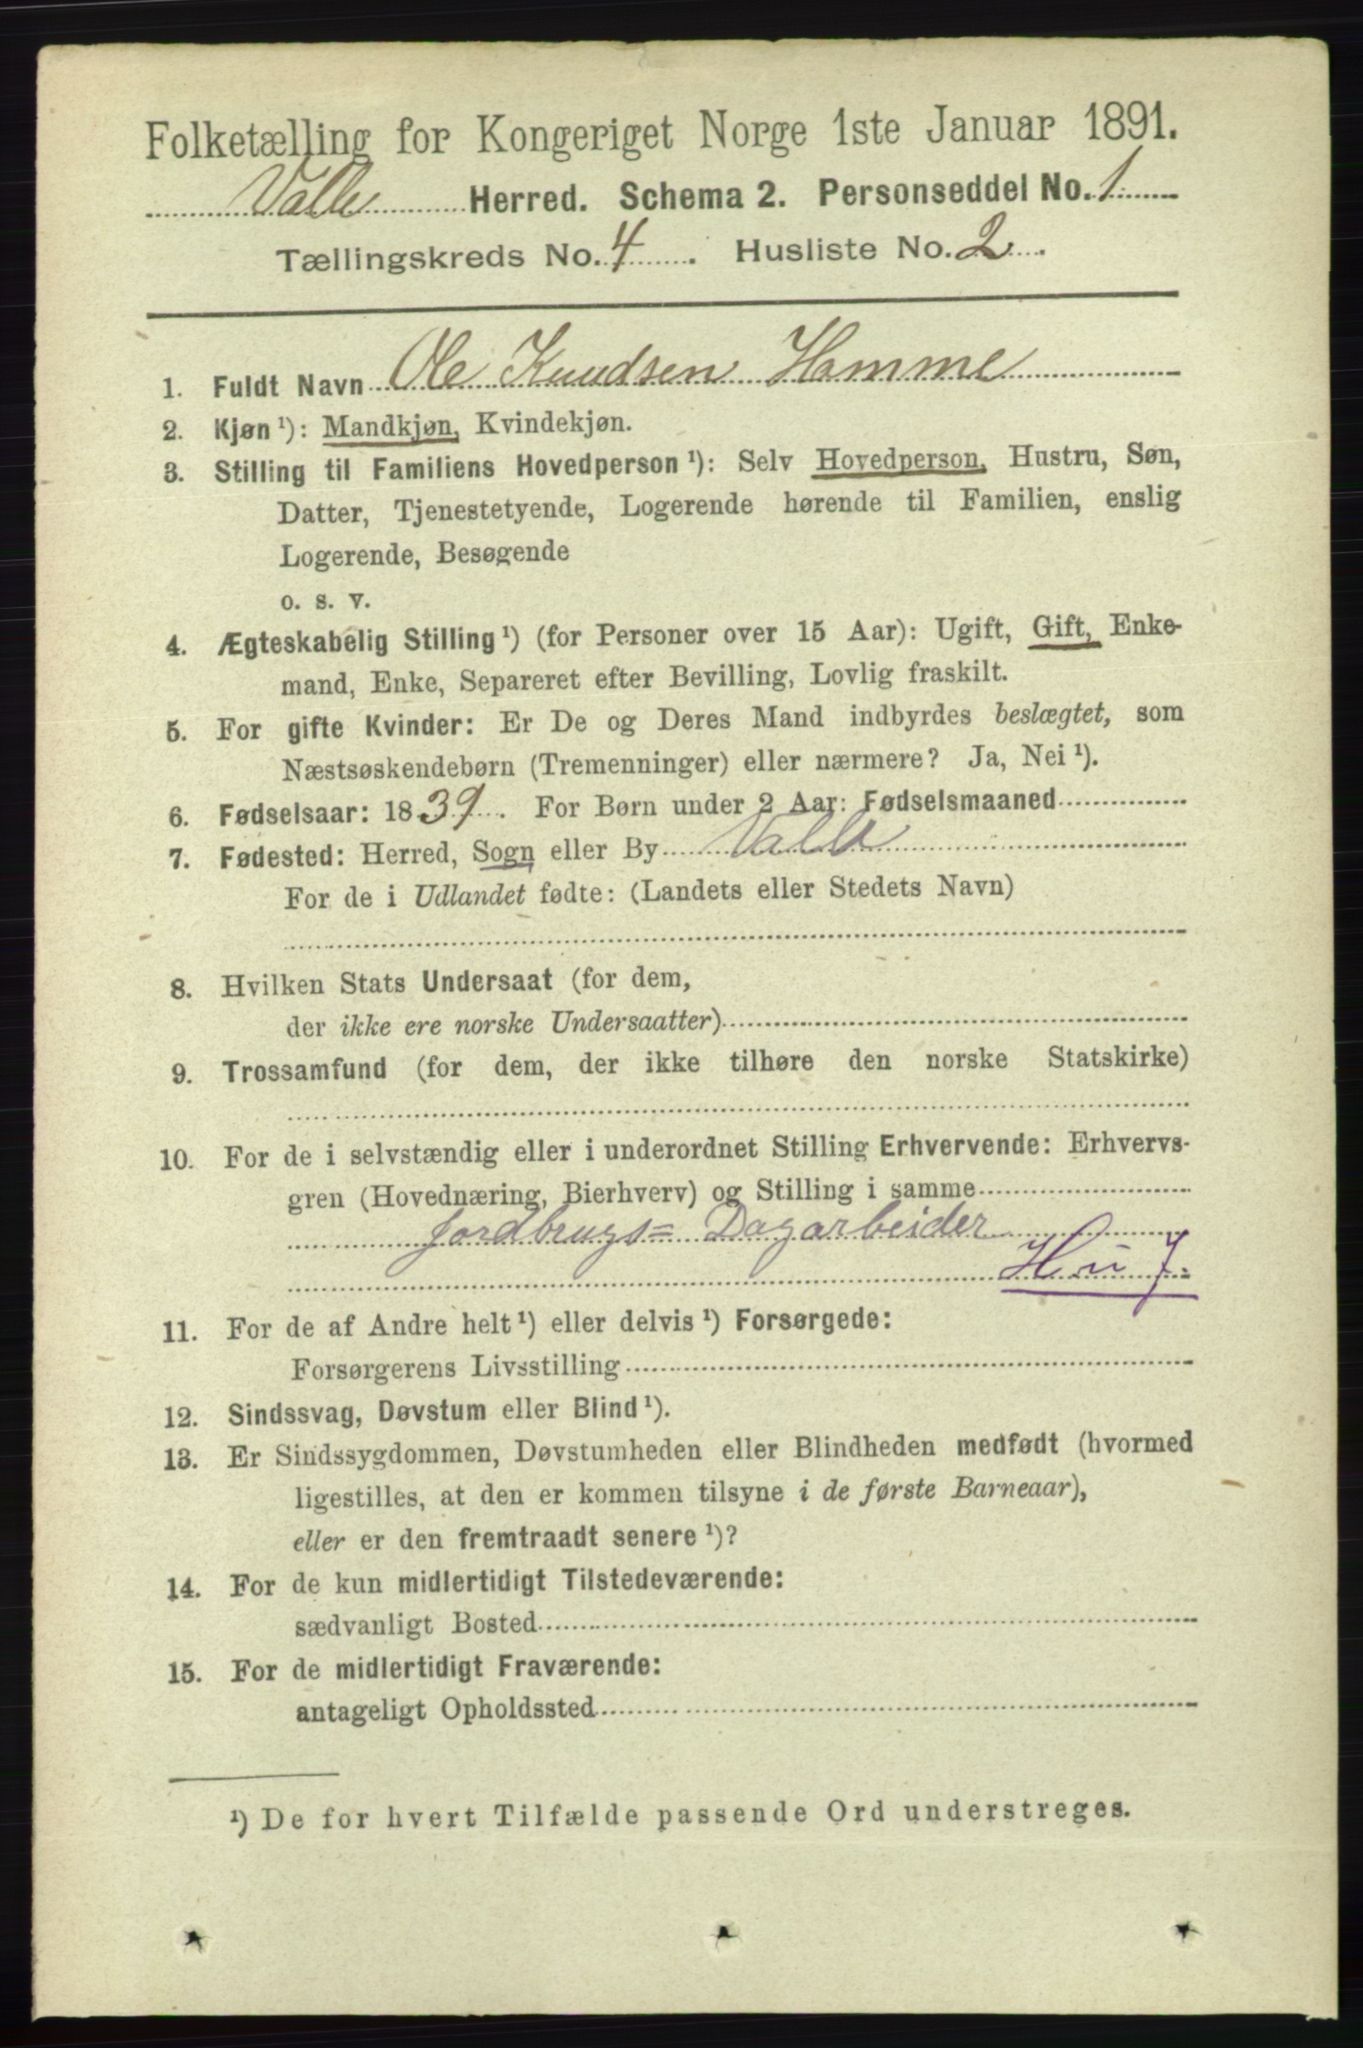 Folketælling for Kongeriget Norge 1ste Januar 1891.
Valle Herred. Schema 2. Personseddel No. 1
Tællingskreds No. 4. Husliste No. 2.
1. Fuldt Navn Ole Knudsen Homme
2. Kjøn¹): Mandkjøn, Kvindekjøn.
3. Stilling til Familiens Hovedperson¹): Selv Hovedperson, Hustru, Søn,
Datter, Tjenestetyende, Logerende hørende til Familien, enslig
Logerende, Besøgende
o. s. v.
4. Ægteskabelig Stilling¹) (for Personer over 15 Aar): Ugift, Gift, Enke-
mand, Enke, Separeret efter Bevilling, Lovlig fraskilt.
5. For gifte Kvinder: Er De og Deres Mand indbyrdes beslægtet, som
Næstsøskendebørn (Tremenninger) eller nærmere? Ja, Nei¹).
6. Fødselsaar: 1839. For Børn under 2 Aar: Fødselsmaaned
7. Fødested: Herred, Sogn eller By Valle
For de i Udlandet fødte: (Landets eller Stedets Navn)
8. Hvilken Stats Undersaat (for dem,
der ikke ere norske Undersaatter)
9. Trossamfund (for dem, der ikke tilhøre den norske Statskirke)
10. For de i selvstændig eller i underordnet Stilling Erhvervende: Erhvervs-
gren (Hovednæring, Bierhverv) og Stilling i samme
Jordbrugs= Dagarbeider
H u J.
11. For de af Andre helt¹) eller delvis¹) Forsørgede:
Forsørgerens Livsstilling
12. Sindssvag, Døvstum eller Blind¹).
13. Er Sindssygdommen, Døvstumheden eller Blindheden medfødt (hvormed
ligestilles, at den er kommen tilsyne i de første Barneaar),
eller er den fremtraadt senere¹)?
14. For de kun midlertidigt Tilstedeværende:
sædvanligt Bosted
15. For de midlertidigt Fraværende:
antageligt Opholdssted
¹) De for hvert Tilfælde passende Ord understreges.